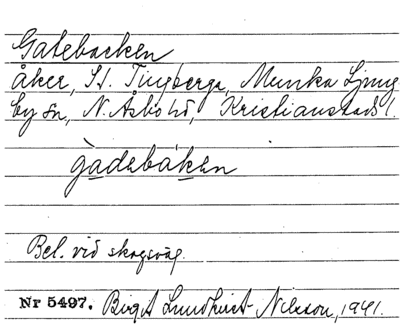 Gatebacken
åker, St. Tingberga, Munka Ljung
by sn, N. Åsbo hd, Kristianstads l.
gàdebáken
Bel. vid skogsväg.
Nr 5497. Birgit Lundkvist-Nilsson, 1941.